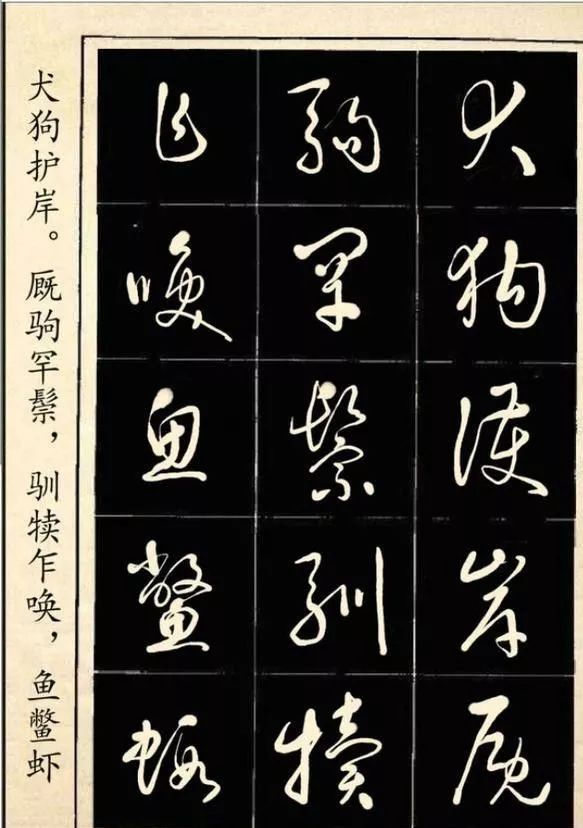 犬狗護岸厩
駒罕鬃馴犢
乍喚魚鱉蝦
犬狗护岸。厩驹罕鬃，驯犊乍唤，鱼鳖虾